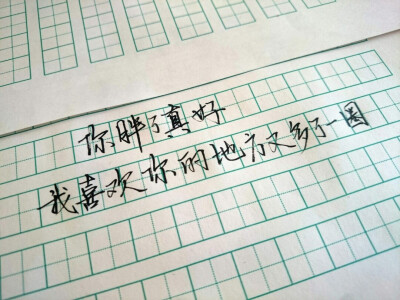 你胖了真好
我喜欢你的地方又多了一圈